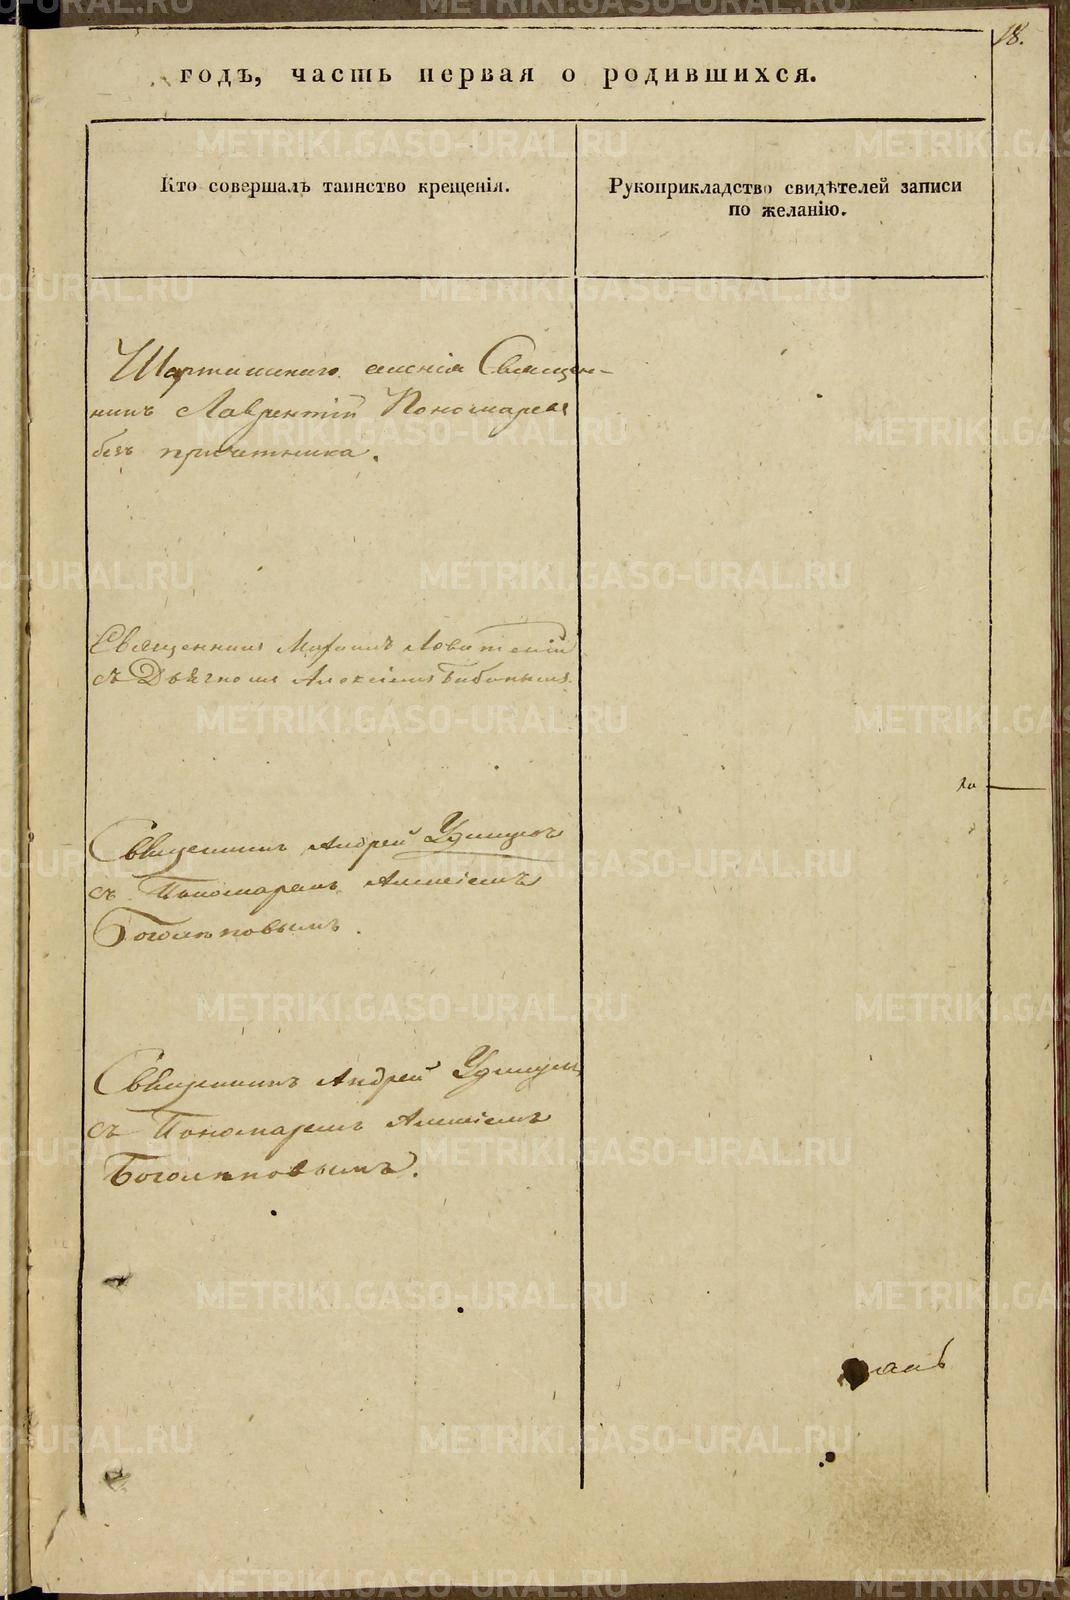 18.
годъ, часть первая о родившихся.
Кто совершалъ таинство крещенія.
Рукоприкладство свидѣтелей записи
по желанію.
Шарташскаго селенія Священ-
никъ Лаврентій Пономаревъ
безъ причетника.
Священникъ Махаилъ
съ Дьячкомъ Алексіемъ Бабинымъ.
Священникъ Андрей Удинцовъ
съ Пономаремъ Алексіемъ
Боголѣповымъ.
Священникъ Андрей Удинцевъ
съ Пономаремъ Алексіемъ
Боголѣповымъ.
METRIKI.GASO-URAL.RU